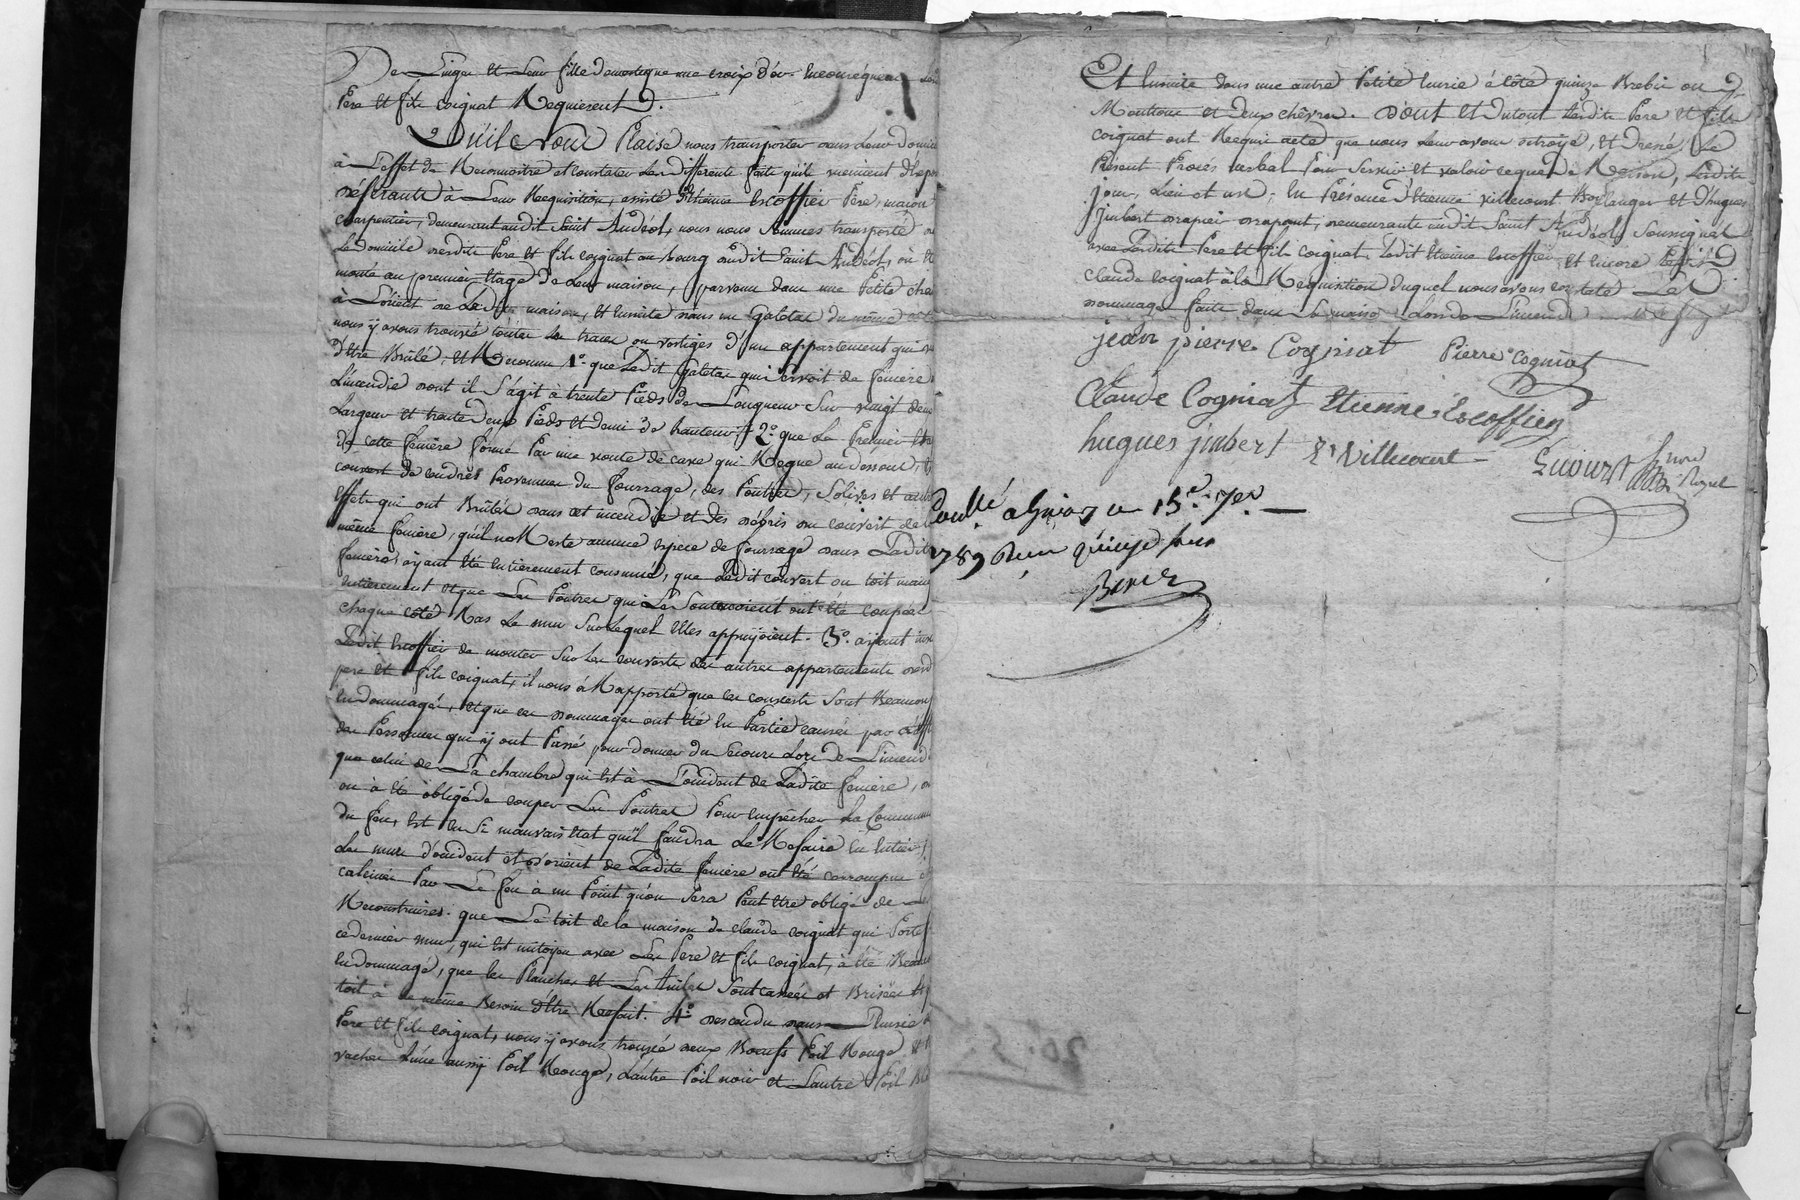 De Linger et Leur fille domestique une croix d'or
Pere et fils Coignat Requierent
Qu'il Nous Plaise nous transporter dans Leur domici
à L'effet de Reconnoitre et Constater Les differents faits qu'ils viennent d'expo
déférants à Leur Requisition, assisté d'Etienne Escoffier Pere, maçon
charpentier, demeurant audit Saint Andéol, nous nous Sommes transporté
Le domicile desdits Pere et fils Coignat au bourg dudit Saint Andéol, où
monté au premier Etage de Leur maison, parvenu dans une Petite cha
à L'orient de Lad. maison, et Ensuite dans un Galetas du même
nous y avons trouvé toutes Les traces ou vestiges d'un appartement qui
d'Etre Brulé, et Reconnu 1°. que Ledit Galetas qui servoit de feniere
L'incendie dont il S'agit à trente Pieds de Longueur Sur vingt deux
Largeur et trente deux Pieds et demi de hauteur 2°. que Le Premier
de cette feniere formé Par une voute de cave qui Regne au dessous
couvert de cendres Provenues du fourrage, des Poutres, Solives et autres
effets qui ont Brûlés dans cet incendie et des débris du couvert de
même feniere, qu'il ne Reste aucune Espece de fourrage dans Ladite
feniere, ayant Eté Entierement consumé, que Ledit couvert ou toit
Entierement et que Les Poutres qui Le Soutenoient ont Eté coupées
chaque côté Ras Le mur Sur Lequel Elles appuyoient. 3°. ayant
Ledit Escoffier de monter Sur Les couverts des autres appartements desd
pere et fils Coignat, il nous à Rapporté que les couverts Sont Beaucoup
Endommagés, et que les dommages ont Eté En Partie causés par
des Personnes qui y ont Passé pour donner du Secours Lors de L'incend
que celui de La chambre qui Est à L'occident de Ladite feniere,
on à Eté obligé de couper Les Poutres Pour Empecher La Commun
du feu, Est En Si mauvais Etat qu'il faudra Le Refaire En Entier
Les murs d'occident et d'orient de Ladite feniere ont Eté corrompus
calcinés Par Le feu à un Point qu'on Sera Peut Etre obligé de Les
Reconstruires. que Le toit de la maison de Claude Coignat qui Porte
ce dernier mur, qui Est mitoyen avec Les Pere et fils Coignat, à Eté Beau
Endommagé, que les Planches et Les Tuiles Sont cassées et Brisées
toit à de même Besoin d'Etre Refait. 4°. descendu dans L'Ecurie
Pere et fils Coignat, nous y avons trouvé deux Boeufs Poil Rouge
vaches L'une aussy Poil Rouge, L'autre Poil noir et L'autre Poil
Et Ensuite dans une autre Petite Ecurie à côté quinze Brebis ou
Moutons et deux chêvres. Dont et Dutout Lesdits Pere et fils
Coignat ont Requis acte que nous Leur avons octroyé, et dressé Le
Présent Procés verbal Pour Servir et valoir ce que de Raison, Lesdits
jour, Lieu et an. En Présence d'Etienne Villecourt Boulanger et d'hugues
Jmbert drapier drapant, demeurants audit Saint Andéol, Soussignés
avec Lesdits Pere et fils Coignat. Ledit Etienne Escoffier, et Encore
Claude Coignat à la Requisition Duquel nous avons constaté Le
dommage fait dans Sa maison Lors de L'incendie
jean pierre Cogniat Pierre Cogniat
Claude Cogniat Etienne Escoffier
hugues jmbert E Villecourt
Not. Royal
Conllé a Givors ce 15e. 7bre.
1789 Reçu quinze sous